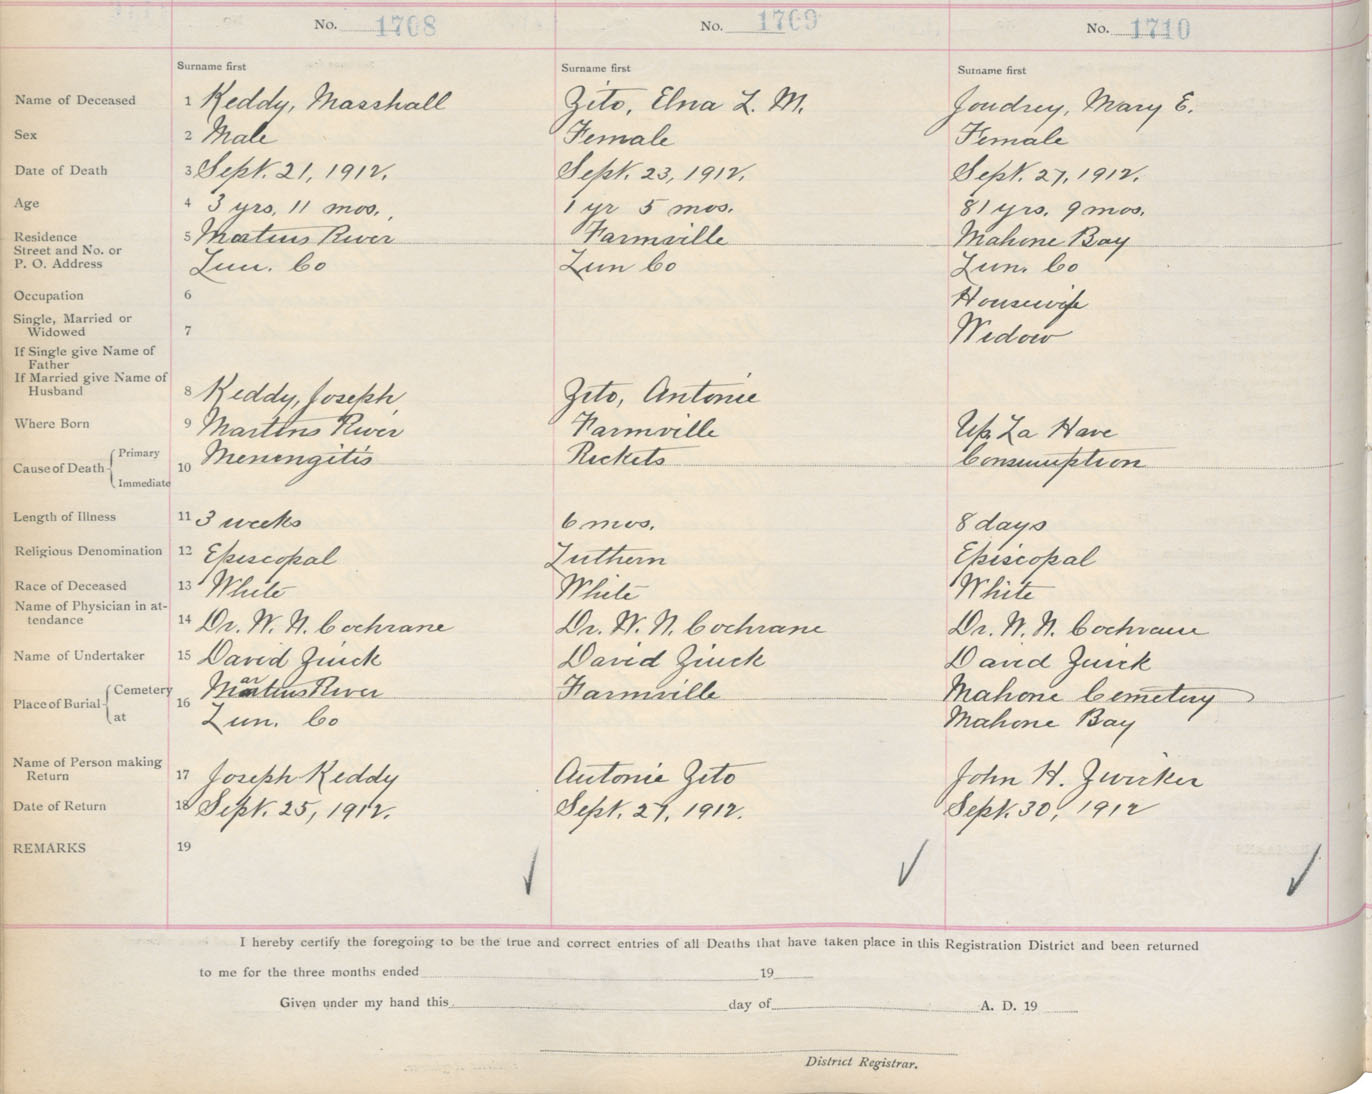 No. 1708 No. 1709 No. 1710
Surname first Surname first Surname first
Name of Deceased 1 Keddy, Marshall Zito, Elna L. M. Joudrey, Mary E.
Sex 2 Male Female Female
Date of Death 3 Sept. 21, 1912. Sept. 23, 1912. Sept. 27, 1912.
Age 4 3 yrs, 11 mos. 1 yr 5 mos. 81 yrs. 9 mos.
Residence 5 Martins River Farmville Mahone Bay
Street and No. or
P. O. Address Lun. Co Lun Co Lun. Co
Occupation 6 Housewife
Single, Married or
Widowed 7 Widow
If Single give Name of
Father
If Married give Name of
Husband 8 Keddy, Joseph Zito, Antonie
Where Born 9 Martins River Farmville Up. La Have
Cause of Death Primary 10 Menengitis Rickets Consumption
Immediate
Length of Illness 11 3 weeks 6 mos. 8 days
Religious Denomination 12 Episcopal Luthern Episcopal
Race of Deceased 13 White White White
Name of Physician in at-
tendance 14 Dr. W. N. Cochrane Dr. W. N. Cochrane Dr. W. N. Cochrane
Name of Undertaker 15 David Zinck David Zinck David Zinck
Place of Burial Cemetery 16 Martins River Farmville Mahone Cemetery
at Lun. Co Mahone Bay
Name of Person making
Return 17 Joseph Keddy Antonie Zito John H. Zwicker
Date of Return 18 Sept. 25, 1912. Sept. 27, 1912. Sept. 30, 1912
REMARKS 19
I hereby certify the foregoing to be the true and correct entries of all Deaths that have taken place in this Registration District and been returned
to me for the three months ended 19
Given under my hand this day of A. D. 19
District Registrar.